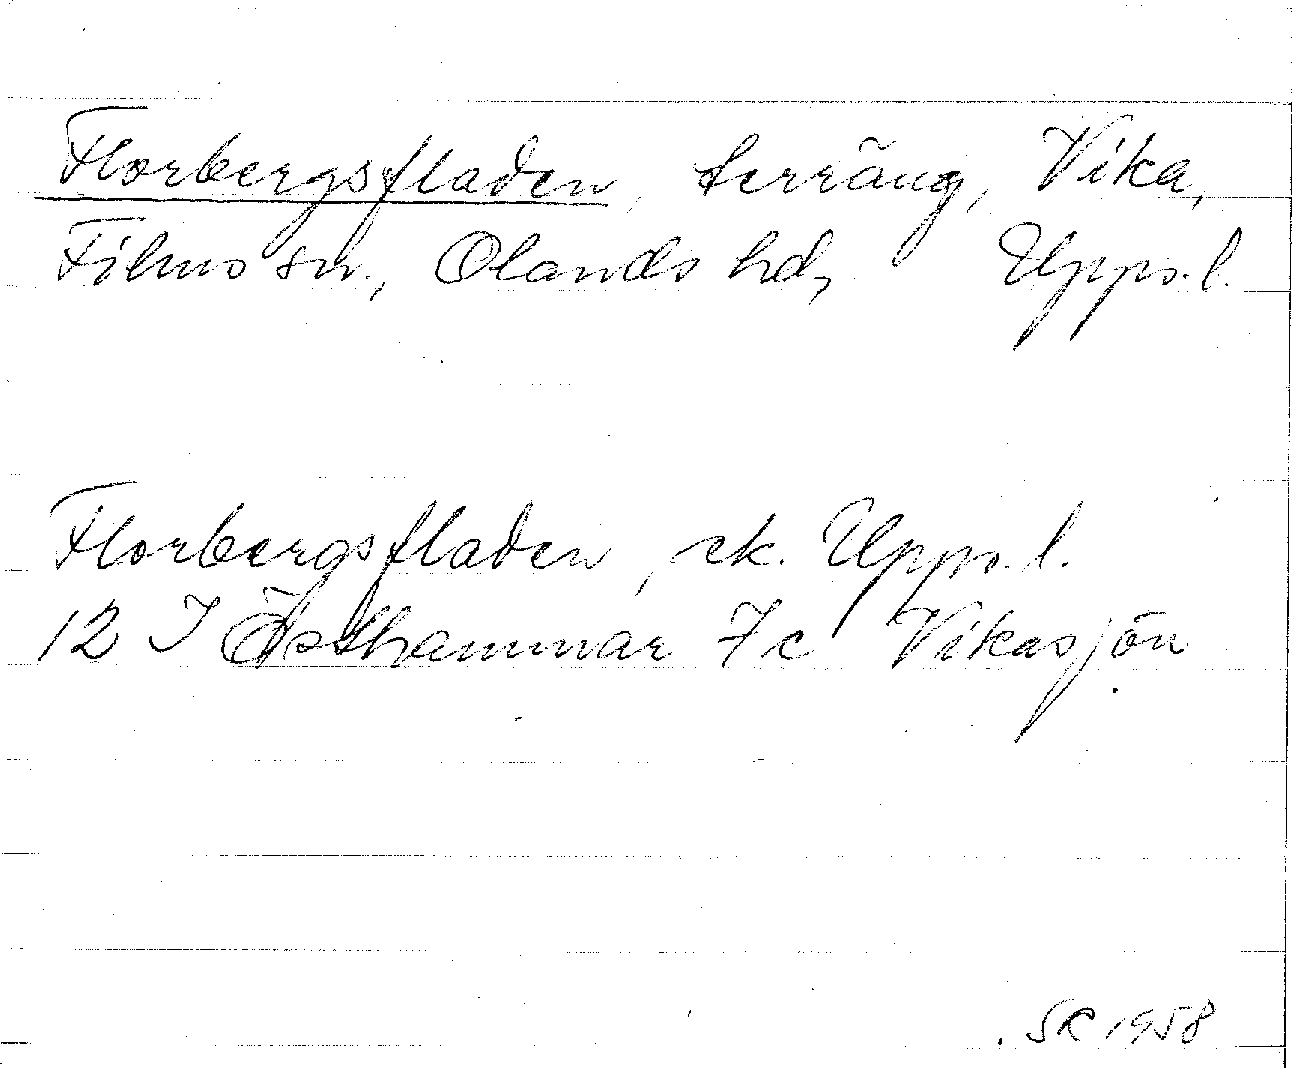 Florbergsfladen, terräng, Vika,
Films sn., Olands hd, Upps. l.
Florbergsfladen, ek. Upps. l.
12 I Östhammar 7c Vikasjön
SR 1958